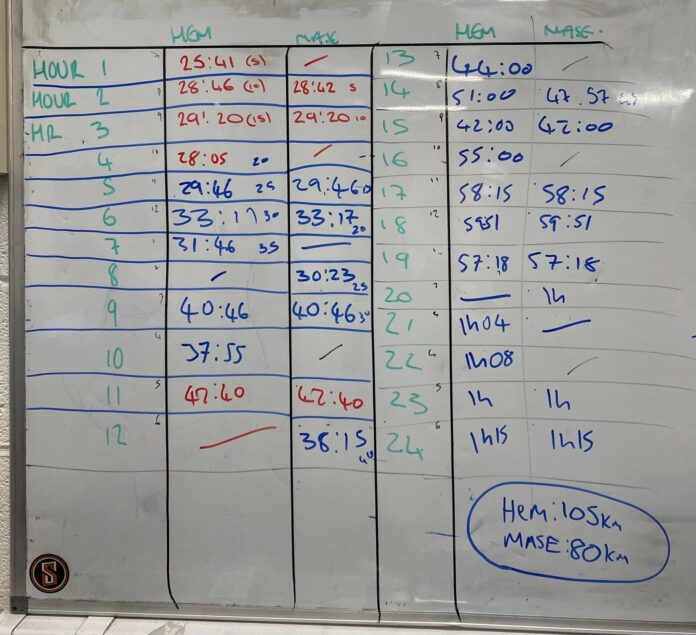 HEM MASE HEM MASE
HOUR 1 25:41 (5) / 13 7 44:00 /
HOUR 2 28:46 (10) 28:42 5 14 8 51:00 47:57
HR 3 29:20 (15) 29:20 10 15 9 42:00 42:00
4 28:05 20 / 16 10 55:00 /
5 29:46 25 29:46 17 11 58:15 58:15
6 12 33:17 30 33:17 20 18 12 5951 59:51
7 31:46 35 — 19 57:18 57:18
8 / 30:23 25 20 — 1h
9 40:46 40:46 30 21 1h04 —
10 37:55 / 22 4 1h08 /
11 5 47:40 47:40 23 5 1h 1h
12 6 / 38:15 40 24 6 1h15 1h15
HEM: 105Km
MASE: 80Km
S